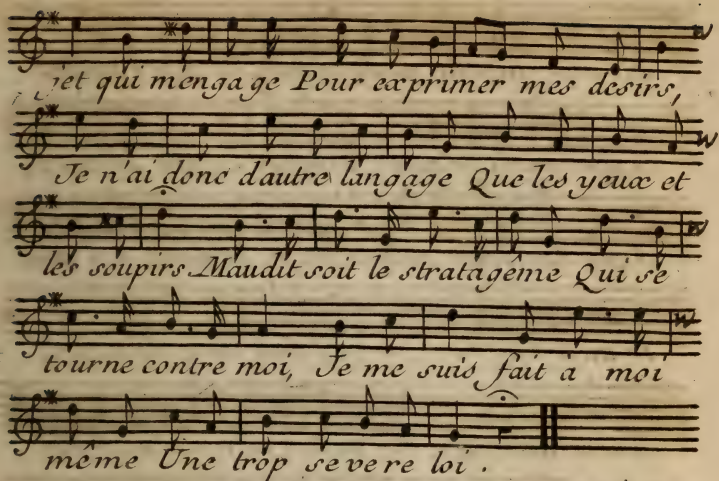 jet qui m'engage Pour exprimer mes desirs,
Je n'ai donc d'autre langage Que les yeux et
les soupirs Maudit soit le stratagême Qui se
tourne contre moi, Je me suis fait à moi
même Une trop severe loi.